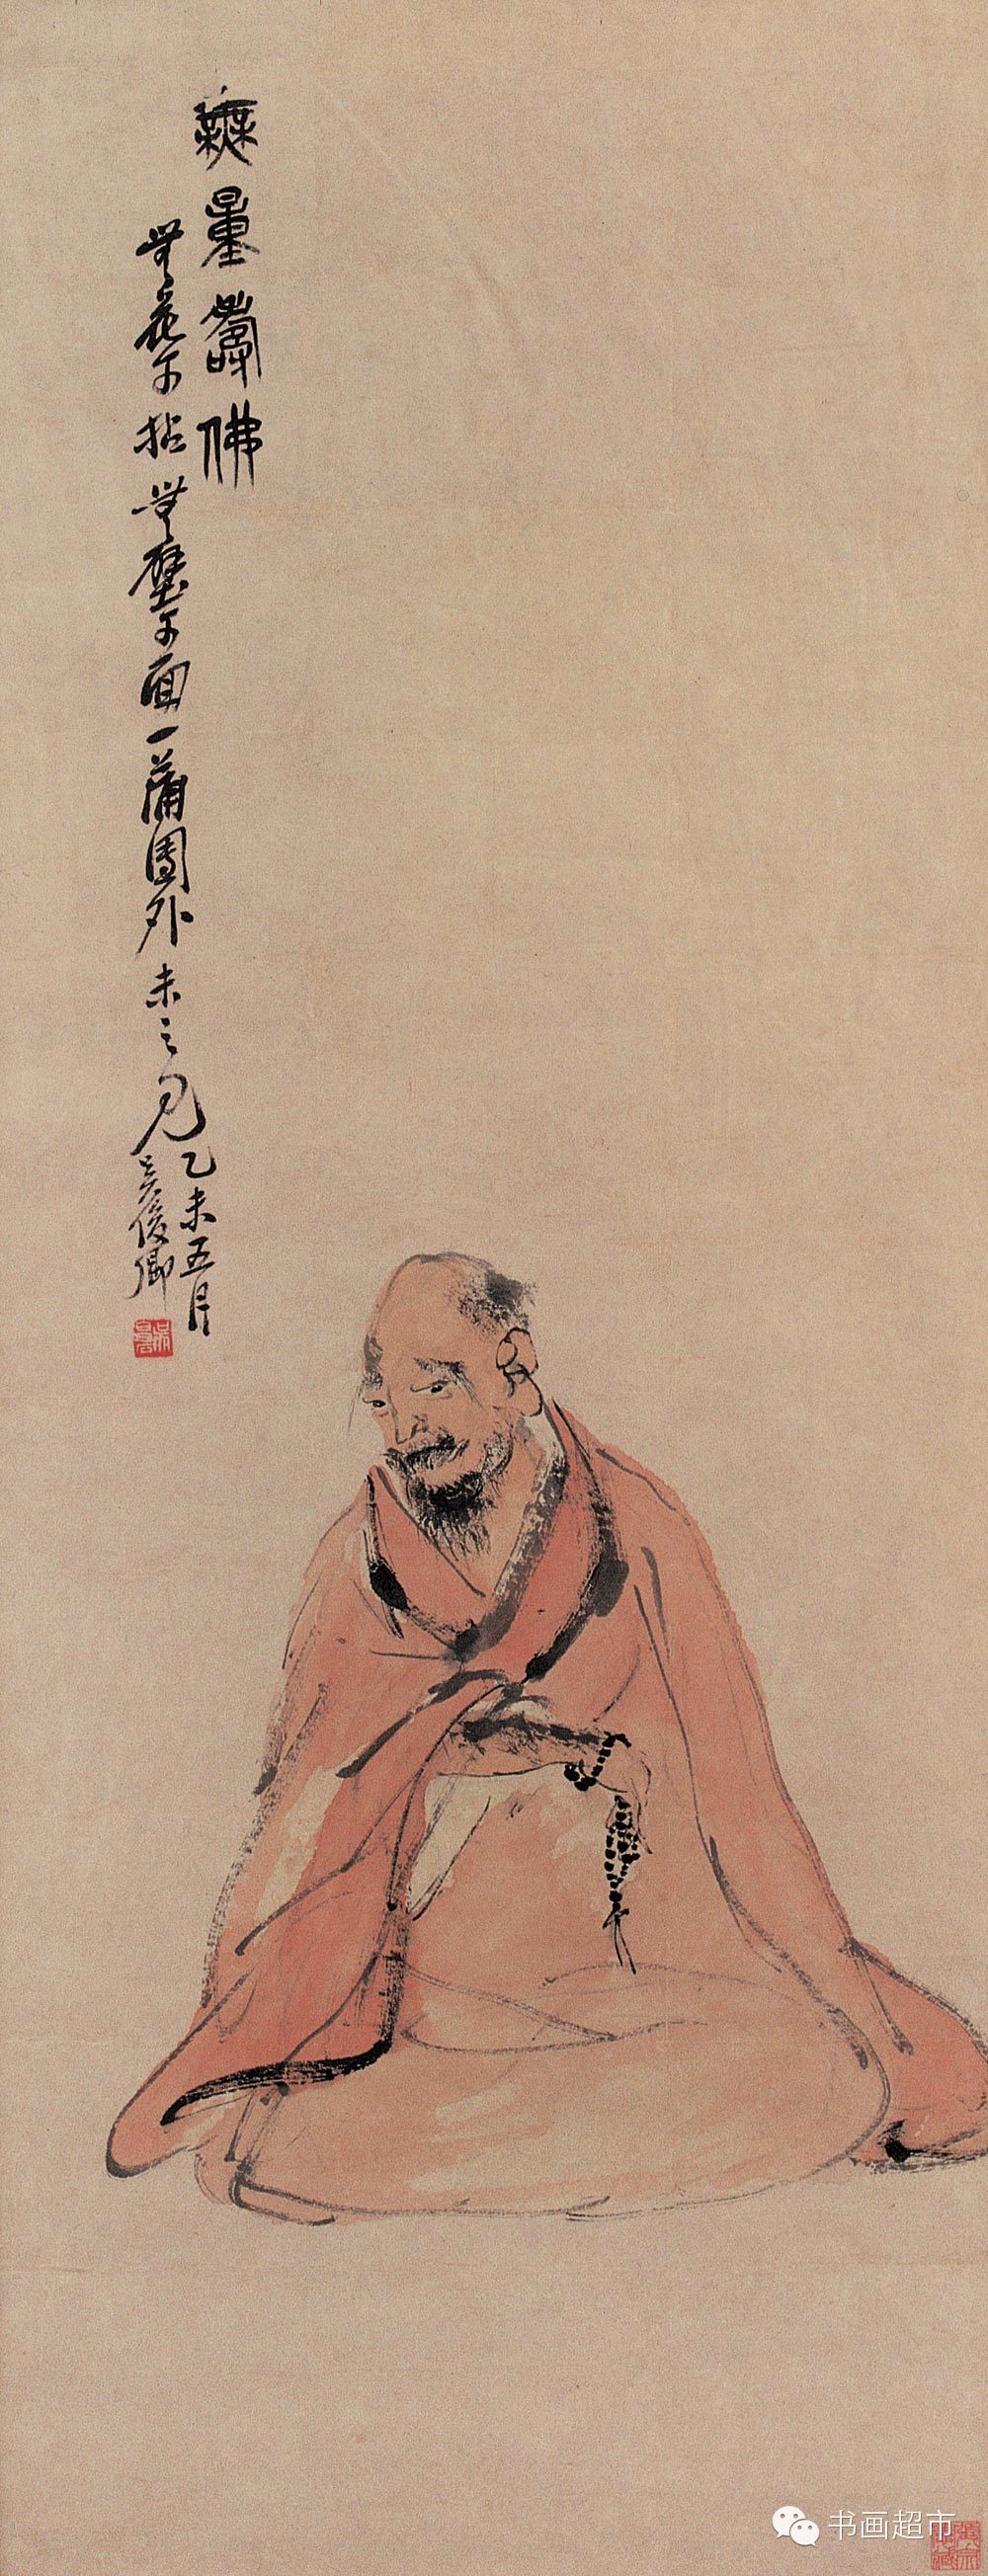 無量壽佛
無花可拈無壁可面一蒲團外未之見
乙未五月
吳俊卿
書画超市